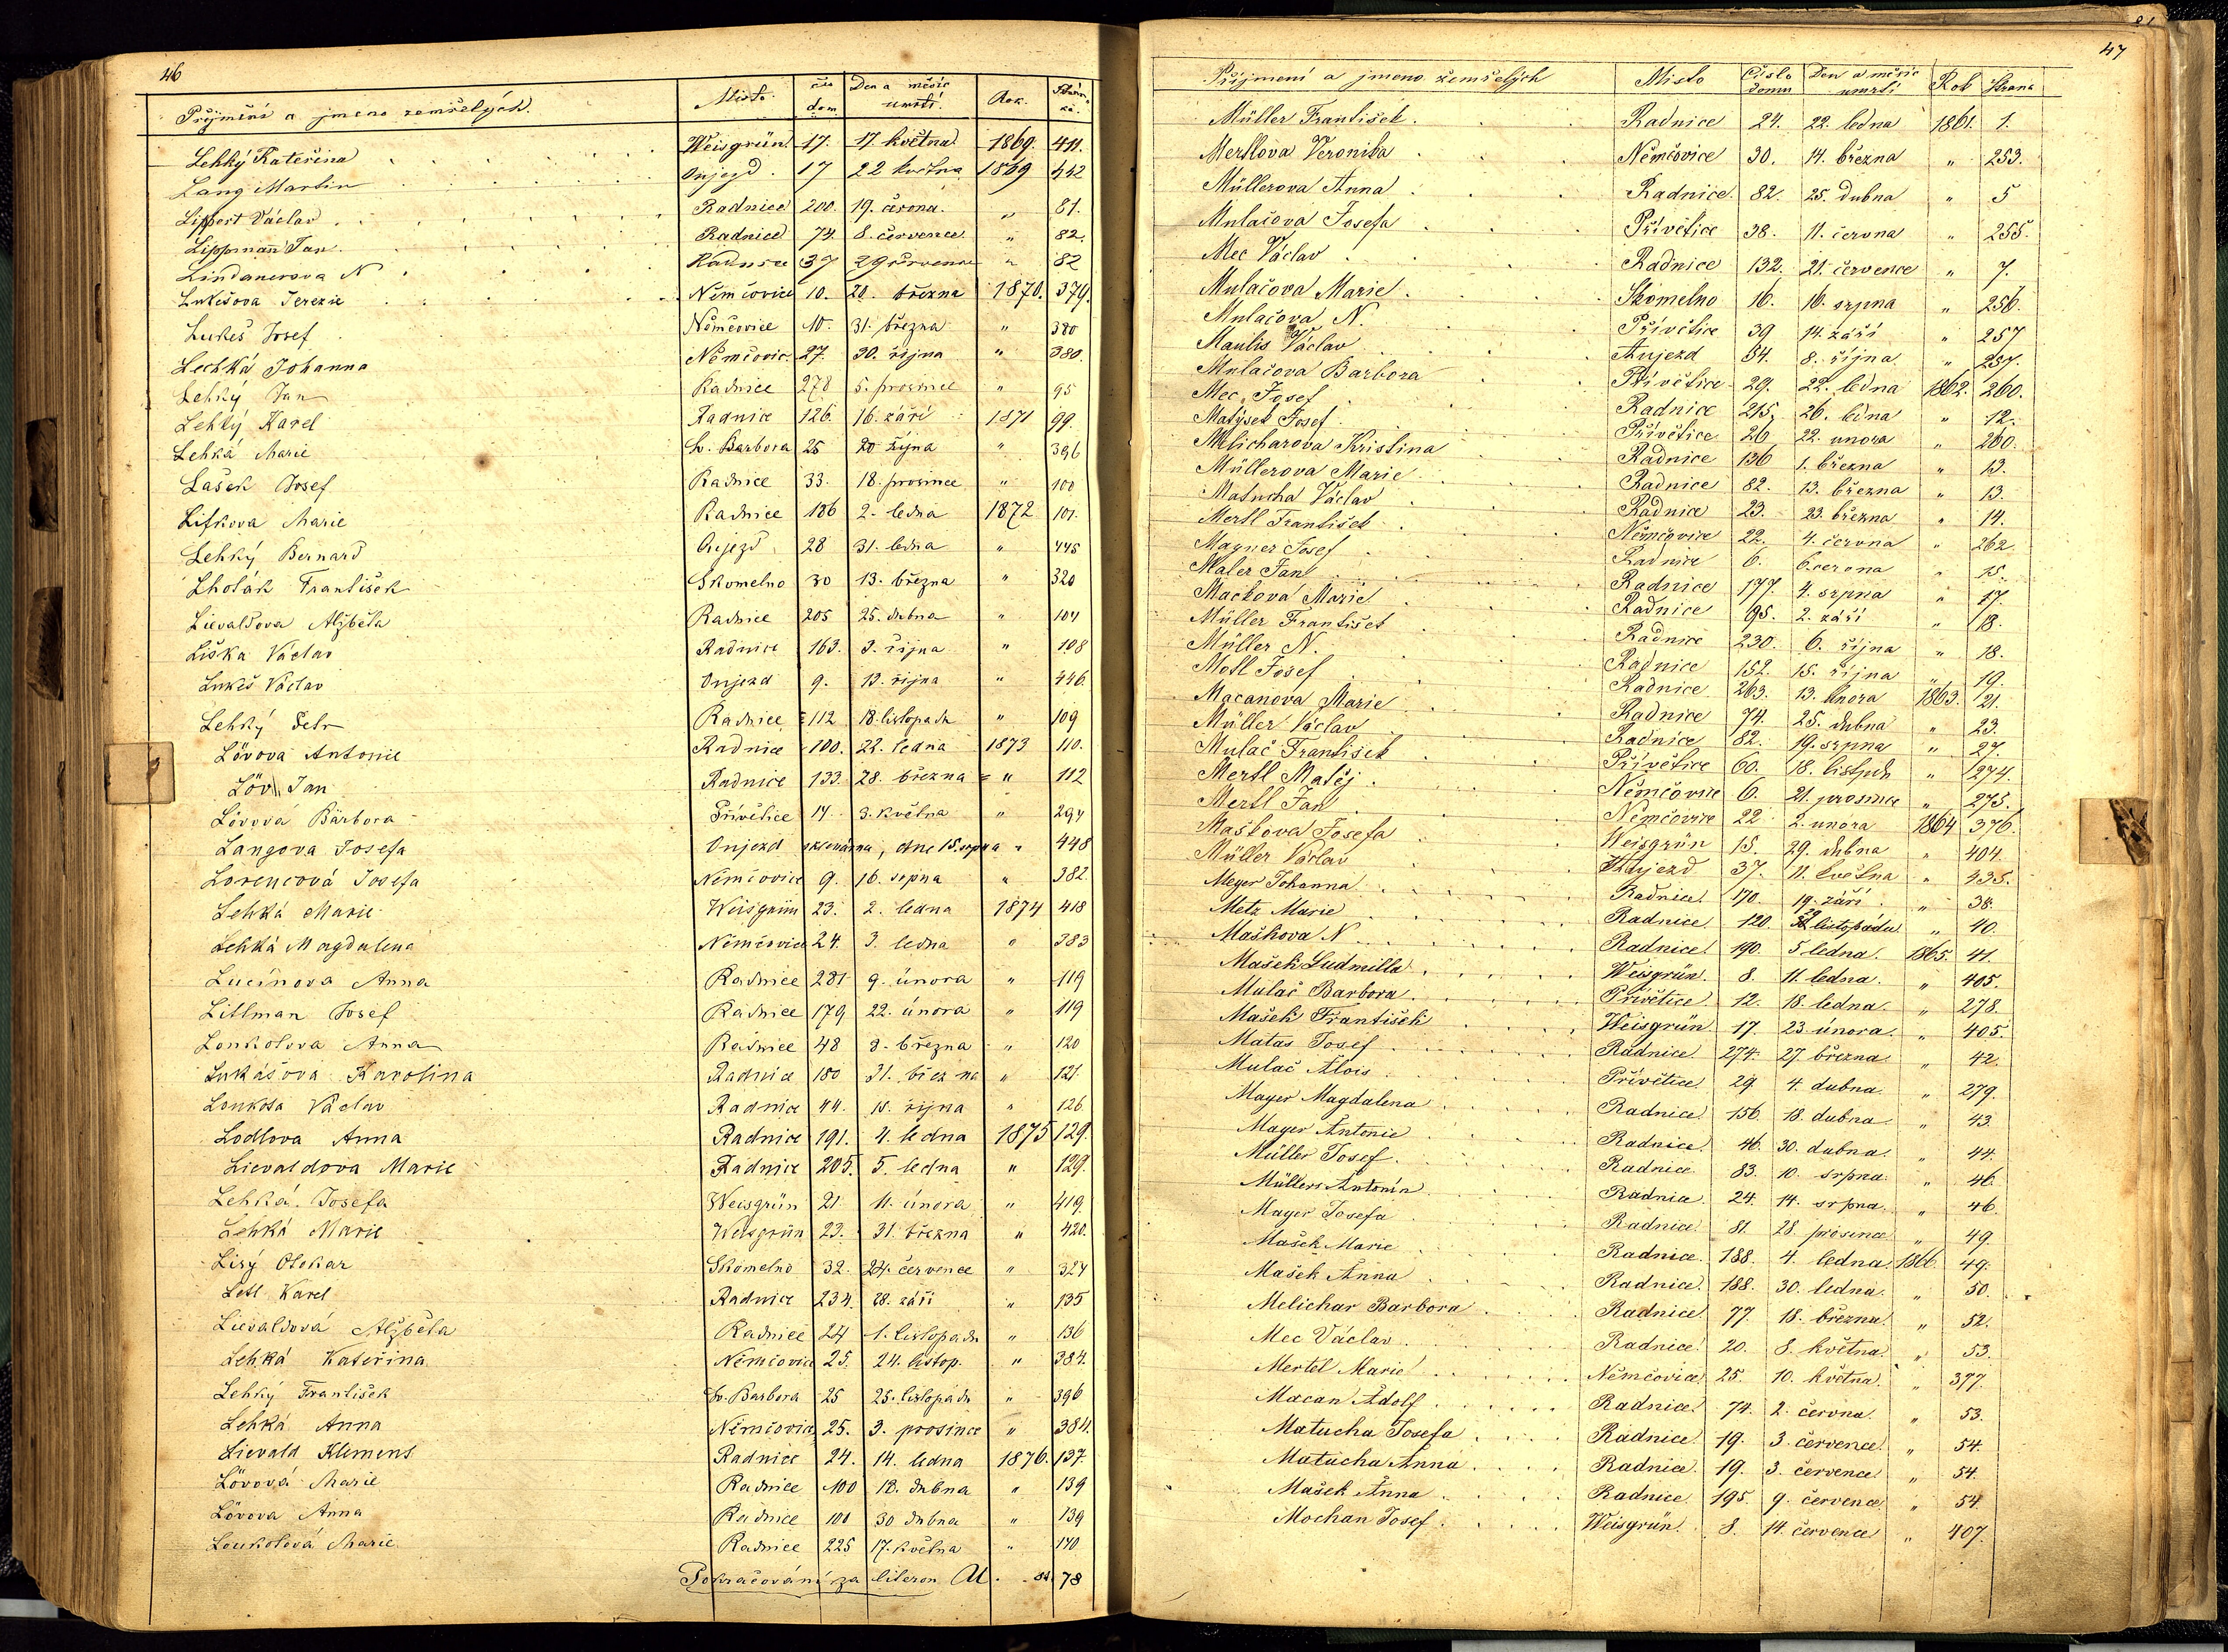 46
Příjmění a jmeno zemřelých. Misto. čís dom Den a měsíc umrtí. Rok. Strán ka.
Lehký Kateřina Weisgrün 17. 17. května 1869. 411.
Lang Martin Oujezd. 17 22 května 1869 442
Lippert Václav Radnice 200. 19. června. „ 81.
Lippmann Jan. Radnice 74. 8. července „ 82.
Lindauerova N Radnice 37 29 července „ 82
Lukešova Terezie Němčovice 10. 20. března 1870. 379.
Lukeš Josef Němčovice 10. 31. března „ 380
Lechká Johanna Němčovic. 27. 30. října „ 380.
Lehký Jan Radnice 278 5. prosince „ 95
Lehký Karel Radnice 126. 16. září 1871 99.
Lehká Marie Sv. Barbora 25 20 října „ 396
Lašek Josef Radnice 33. 18. prosince „ 100
Lifkova Marie Radnice 186 2. ledna 1872 101.
Lehký Bernard Oujezd 28 31. ledna „ 445
Lhoták František Skomelno 30 13. března „ 320
Lievaldova Alžběta Radnice 205 25. dubna „ 104
Liška Václav Radnice 163. 3. října „ 108
Lukeš Václav Oujezd 9. 13. října „ 446.
Lehký Petr Radnice 112 18. listopadu „ 109
Lövova Antonie Radnice 100. 22. ledna 1873 110.
Löv Jan Radnice 133. 28. března „ 112
Lövová Bárbora Přívětice 14. 3. května „ 294
Langova Josefa Oujezd sklovárna, dne 15. srpna „ 448
Lorencová Josefa Němčovice 9. 16. srpna „ 382.
Lehká Marie Weisgrün 23. 2. ledna 1874 418
Lehká Magdalena Němčovice 24. 3. ledna „ 383
Lucínova Anna Radnice 281 9. února „ 119
Littman Josef Radnice 179 22. února „ 119
Loukotova Anna Radnice 48 8. března „ 120
Lukášova Karolina Radnice 180 31. března „ 121.
Loukota Václav Radnice 44. 15. října „ 126.
Lodlova Anna Radnice 191. 4. ledna 1875 129.
Lievaldova Marie Radnice 205. 5. ledna „ 129.
Lehká Josefa Weisgrün 21. 11. února „ 419.
Lehká Marie Weisgrün 23. 31. března „ 420.
Lisý Otokar Skomelno 32. 24. července „ 324
Letl Karel Radnice 234. 28. září „ 135
Lievaldová Alžběta Radnice 24 1. listopadu „ 136
Lehká Kateřina Němčovice 25. 24. listop. „ 384.
Lehký František Sv. Barbora 25 25. listopadu „ 396
Lehká Anna Němčovice 25. 3. prosince „ 384.
Lievald Klemens Radnice 24. 14. ledna 1876. 137.
Lövová Marie Radnice 100 12. dubna „ 139
Lövova Anna Radnice 100 30 dubna „ 139
Loukotová Marie Radnice 225 17. května „ 140
Pokračování za literou U. 84 78
47
Příjmení a jmeno zemřelých Misto Číslo domu Den a měsíc umrtí Rok Strana
Müller František. Radnice 24. 22. ledna 1861. 1.
Mertlova Veronika Němčovice 30. 14. března „ 253.
Müllerova Anna Radnice. 82. 25. dubna „ 5
Mulačova Josefa Přívětice 38. 11. června „ 255.
Mec Václav Radnice 132. 21. července „ 7.
Mulačova Marie. Skomelno 16. 16. srpna „ 256.
Mulačova N. Přívětice 39 14. září „ 257
Maulis Václav Aujezd 54. 8. října „ 257.
Mulačova Barbora Přívětice 29. 22. ledna 1862. 260.
Mec, Josef Radnice 215. 26. ledna „ 12.
Matýsek Josef. Přívětice 26 22. unora „ 260.
Melicharova Kristina Radnice 136 1. března „ 13.
Müllerova Marie Radnice 82. 13. března „ 13.
Matucha Václav Radnice 23. 23. března „ 14.
Mertl František. Němčovice 22. 4. června „ 262.
Magner Josef Radnice 6. 6. června „ 15.
Maler Jan Radnice 177. 4. srpna „ 17.
Mackova Marie Radnice 95. 2. září „ 18.
Müller František Radnice 230. 6. října „ 18.
Müller N. Radnice 152. 15. října „ 19.
Motl Josef Radnice 263. 13. února 1863. 21.
Macanova Marie Radnice 74. 25. dubna „ 23.
Müller Václav Radnice 82. 19. srpna „ 27.
Mulač František Přívětice 60. 18. listpdu „ 274.
Mertl Matěj. Němčovice 6. 21. prosince „ 275.
Mertl Jan Němčovice 22 2. unora 1864 376.
Maškova Josefa Weisgrün 15. 29. dubna „ 404.
Müller Václav Aujezd 37. 11. května „ 435.
Meyer Johanna Radnice 170. 19. září „ 38.
Metz Marie Radnice 120. 29 listopadu „ 40.
Maškova N Radnice 190. 5 ledna. 1865. 41.
Mašek Ludmilla Weisgrün. 8. 11. ledna. „ 405.
Mulač Barbora. Přívětice 12. 18. ledna. „ 278.
Mašek František Weisgrün 17. 23. února. „ 405.
Matas Josef. Radnice 274. 27. března. „ 42.
Mulač Alois. Přívětice 29. 4. dubna. „ 279.
Mayer Magdalena Radnice 156. 18. dubna. „ 43.
Mayer Antonie Radnice 46. 30. dubna. „ 44.
Müller Josef. Radnice 83. 10. srpna. „ 46.
Müllers Antonín Radnice 24. 14. srpna. „ 46.
Mayer Josefa Radnice 81. 28. prosince „ 49.
Mašek Marie Radnice 188. 4. ledna. 1866. 49.
Mašek Anna Radnice 188. 30. ledna. „ 50.
Melichar Barbora Radnice 77. 18. března. „ 52.
Mec Václav. Radnice 20. 8. května. „ 53.
Mertel Marie Němčovice 25. 10. května. „ 377.
Macan Adolf Radnice 74. 2. června. „ 53.
Matucha Josefa Radnice. 19. 3. července. „ 54.
Matucha Anna Radnice. 19. 3. července „ 54.
Mašek Anna Radnice 195. 9. července. „ 54.
Mochan Josef. Weisgrün. 8. 14. července „ 407.